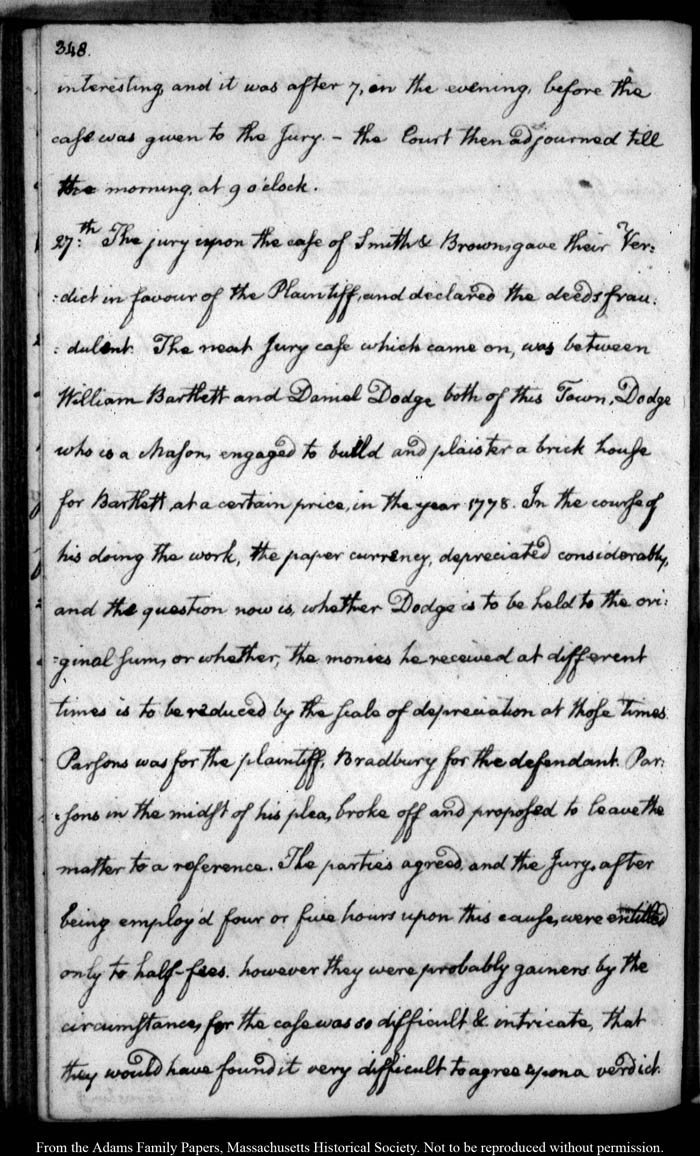 348.
interesting, and it was after 7, in the evening, before the
case was given to the Jury. – the Court then adjourned till
the morning, at 9 o'clock.
27:th The jury upon the case of Smith & Brown, gave their Ver:
:dict in favour of the Plaintiff, and declared the deeds frau:
:dulent. The next Jury case which came on, was between
William Bartlett and Daniel Dodge both of this Town, Dodge
who is a Mason, engaged to build and plaister a brick house
for Bartlett, at a certain price, in the year 1778. In the course of
his doing the work, the paper currency, depreciated considerably,
and the question now is, whether Dodge is to be held to the ori:
:ginal sum, or whether, the monies he received at different
times is to be reduced by the scale of depreciation at those times.
Parsons was for the plaintiff, Bradbury for the defendant. Par:
:sons in the midst of his plea, broke off and proposed to leave the
matter to a reference. The parties agreed, and the Jury, after
being employ'd four or five hours upon this cause, were entitled
only to half-fees. however they were probably gainers by the
circumstance, for the case was so difficult & intricate, that
they would have found it very difficult to agree upon a verdict.
From the Adams Family Papers, Massachusetts Historical Society. Not to be reproduced without permission.